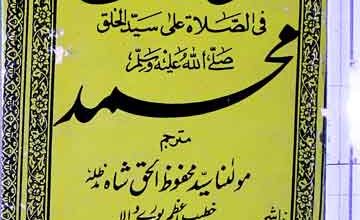 فی الصّلاۃ علیٰ سیّد الخلق
محمد
صلی اللہ علیہ وسلم
مترجم
مولٰنا سید محفوظ الحق شاہ مدظلہ
خطیب اعظم بورے والا
ناشر